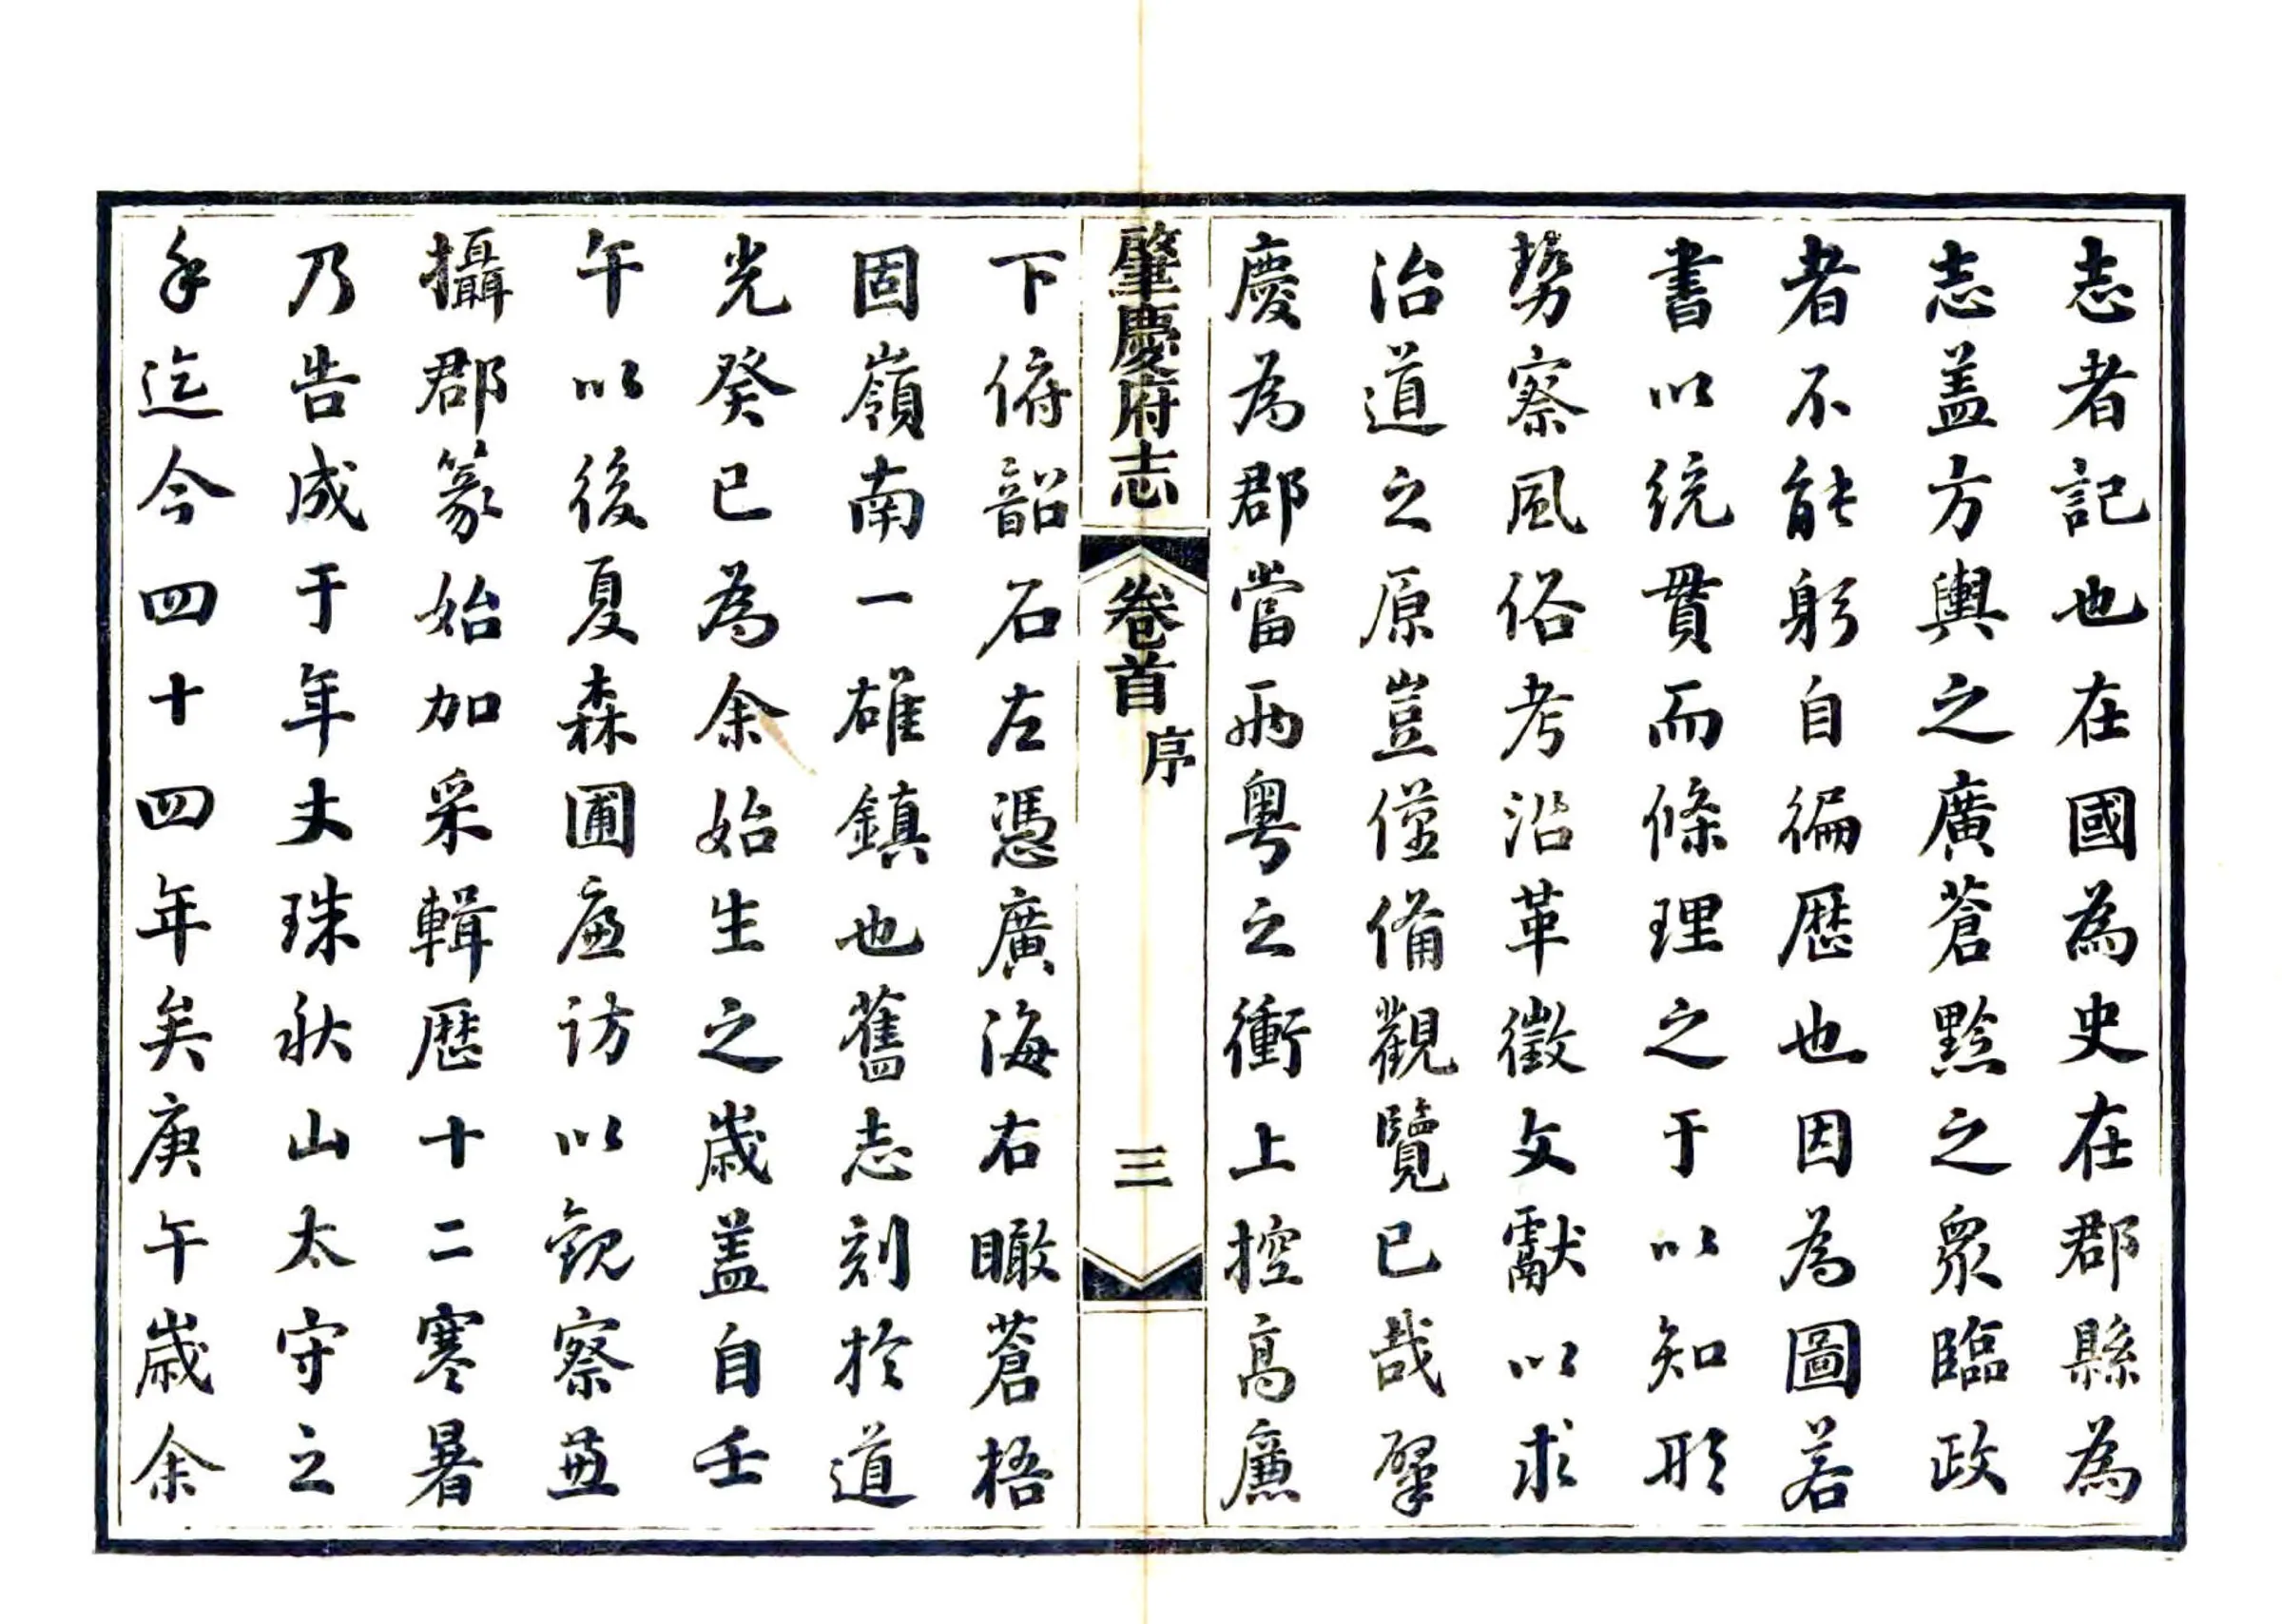 志者記也在國為史在郡縣為
志蓋方輿之廣蒼黔之眾臨政
者不能躬自徧歷也因為圖若
書以統貫而條理之于以知形
勢察風俗考沿革徵文獻以求
治道之原豈僅備觀覽已哉肇
慶為郡當兩粵之衝上控高廉
肇慶府志 卷首 序 三
下俯韶石左憑廣海右瞰蒼梧
固嶺南一雄鎮也舊志刻於道
光癸巳為余始生之歲蓋自壬
午以後夏森圃廉訪以觀察兼
攝郡篆始加采輯歷十二寒暑
乃告成于年丈珠秋山太守之
手迄今四十四年矣庚午歲余